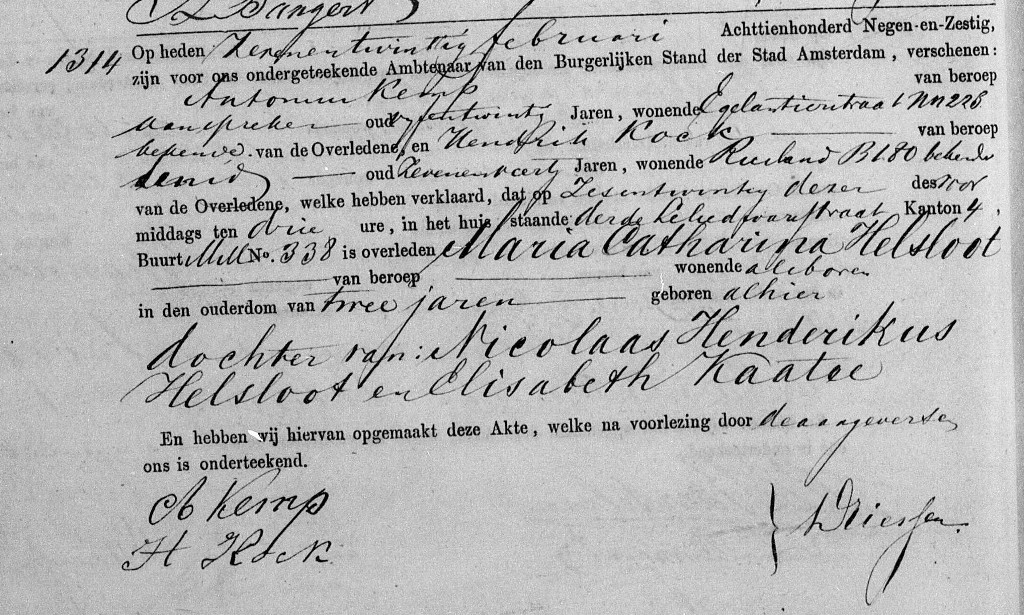 Bangert
1314 Op heden Zevenentwintig februari Achttienhonderd Negen-en-Zestig,
zijn voor ons ondergeteekende Ambtenaar van den Burgerlijken Stand der Stad Amsterdam, verschenen:
Antonius Kemp van beroep
aanspreker oud vyfentwintig Jaren, wonende Egelantierstraat NN 228
bekende van de Overledene, en Hendrik Kock van beroep
oud Jaren, wonende Rusland B180 bekende
van de Overledene, welke hebben verklaard, dat op Zesentwintig dezer des voor
middags ten drie ure, in het huis staande derde Leliedwarsstraat Kanton 4,
Buurt No. 338 is overleden Maria Catharina Helsloot
van beroep wonende
in den ouderdom van twee jaren geboren alhier
dochter van: Nicolaas Henderikus
Helsloot en Elisabeth Kaatee
En hebben wij hiervan opgemaakt deze Akte, welke na voorlezing door de aangevers en
ons is onderteekend.
A Kemp
H Kock